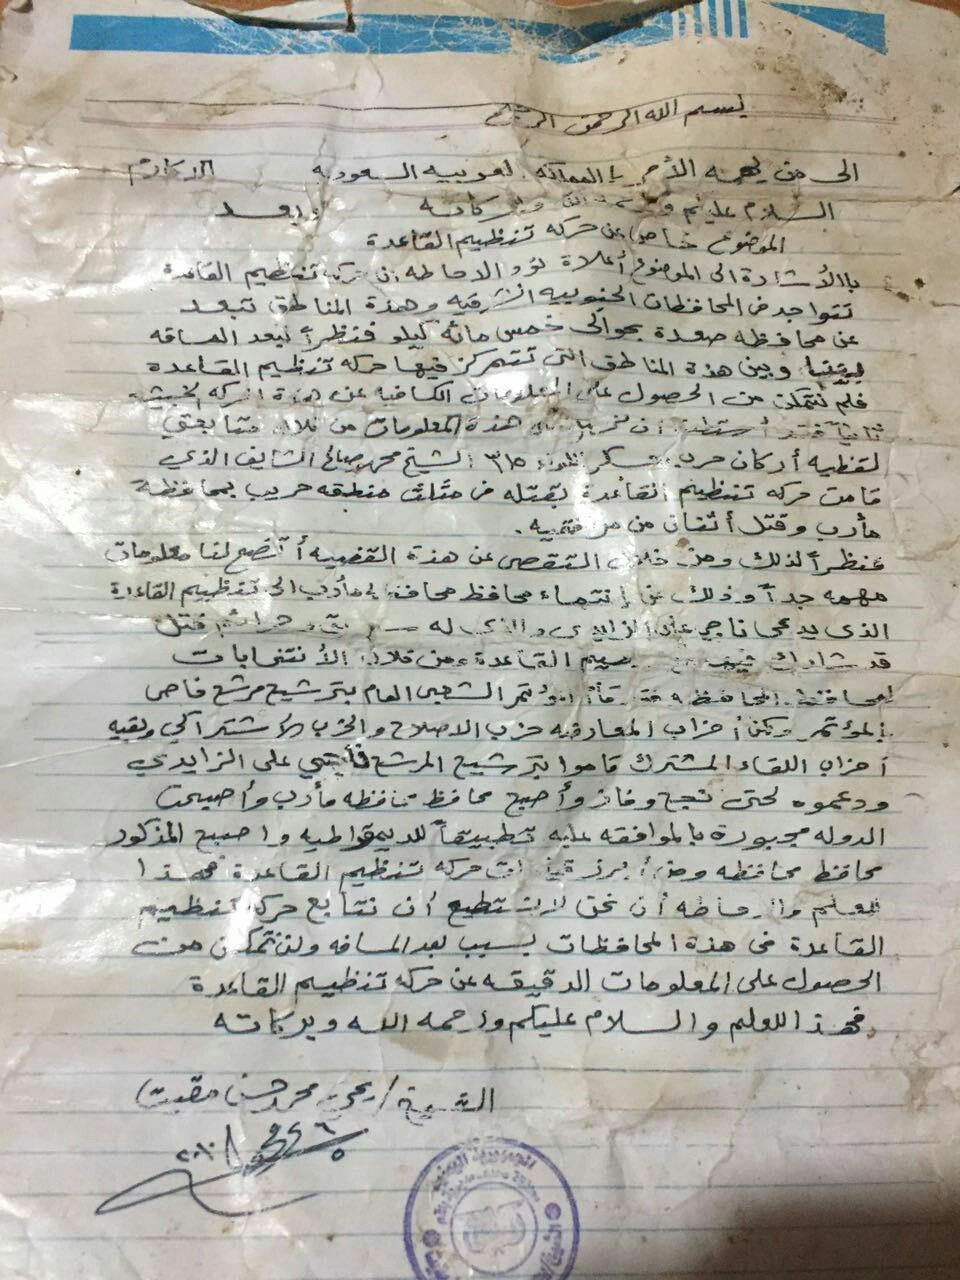 بسم الله الرحمن الرحيم
الى من يهمه الأمر بالمملكه العربيه السعوديه
السلام عليكم ورحمة الله وبركاته وبعد
الموضوع خاص عن حركه تنظيم القاعدة
باالأشارة الى الموضوع أعلاة نود الاحاطه ان حركه تنظيم القاعدة
تتواجد في المحافظات الجنوبيه الشرقيه وهذة المناطق تبعد
عن محافظه صعدة بحوالي خمس مائه كيلو فنظراً لبعد المسافه
بيننا وبين هذة المناطق التي تتمركز فيها حركه تنظيم القاعدة
فلم نتمكن من الحصول على المعلومات الكافيه عن هذة الحركه
ثانياً فقد هذة المعلومات من خلال متابعتي
لقضيه أركان حرب اللواء ٣١٥ الشيخ محمد صالح الشايف الذي
قامت حركه تنظيم القاعدة بقتله في مثلث منطقه حريب بمحافظة
مأرب وقتل أثنان من مرافقيه .
فنظراً لذلك ومن خلال التقصي عن هذة القضيه أتضح لنا معلومات
مهمه جداً وذلك عن إنتماء محافظ محافظه مأرب الى تنظيم القاعدة
الذي يدعى ناجي علي الزايدي والذي له قتل
قد شارك فيها مع تنظيم القاعدة ومن خلال الأنتخابات
لمحافظ المحافظه فقد قام المؤتمر الشعبي العام بترشيح مرشح خاص
المؤتمر ولكن أحزاب المعارضه حزب الاصلاح والحزب الأشتراكي وبقيه
أحزاب اللقاء المشترك قاموا بترشيح المرشح ناجي على الزايدي
ودعموه لحتى نجح وفاز وأصبح محافظ محافظه مأرب وأصبحت
الدوله مجبورة بالموافقه عليه تطبيقاً للديمقراطيه واصبح المذكور
محافظ محافظه ومن أبرز قيادات حركه تنظيم القاعدة فهذا
للعلم والاحاطه أن نحن لانستطيع أن نتابع حركه تنظيم
القاعدة في هذة المحافظات بسبب بعد المسافه ولن نتمكن من
الحصول على المعلومات الدقيقه عن حركه تنظيم القاعدة
فهذا للعلم والسلام عليكم ورحمه الله وبركاته
الشيخ / يحيى محمد حسن مقيت
الجمهورية اليمنية